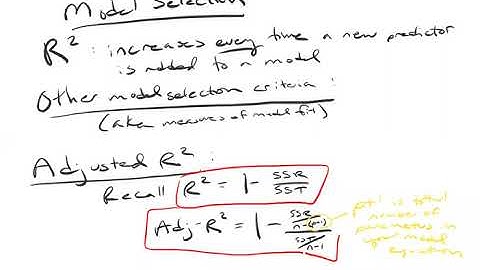 Model Selection
R² : increases every time a new predictor
is added to a model
Other model selection criteria :
(aka measures of model fit)
Adjusted R² :
Recall R² = 1 - SSR/SST
Adj-R² = 1 - (SSR/n-(p+1))/(SST/n-1)
p+1 is total
number of
parameters in
your model
equation